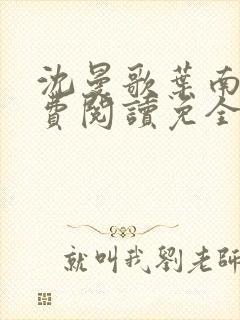 沈曼歌葉南
費閱讀免全
就叫我劉老師